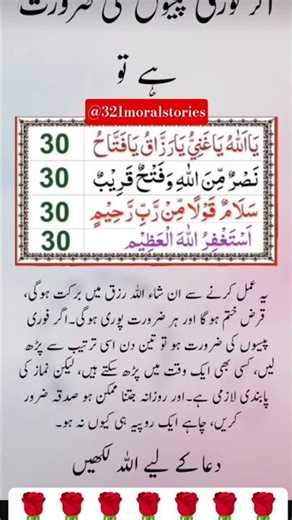 اگر فوری پیسوں کی ضرورت
ہے تو
@321moralstories
يَا اَللهُ يَا غَنِيُّ يَا رَزَّاقُ يَا فَتَّاحُ 30
نَصْرٌ مِّنَ اللهِ وَفَتْحٌ قَرِيْبٌ 30
سَلَامٌ قَوْلًا مِّنْ رَّبٍّ رَّحِيْمٍ 30
اَسْتَغْفِرُ اللهَ الْعَظِيْمِ 30
یہ عمل کرنے سے ان شاء اللہ رزق میں برکت ہوگی،
قرض ختم ہوگا اور ہر ضرورت پوری ہوگی۔ اگر فوری
پیسوں کی ضرورت ہو تو تین دن اسی ترتیب سے پڑھ
لیں، کسی بھی ایک وقت میں پڑھ سکتے ہیں، لیکن نماز کی
پابندی لازمی ہے۔ اور روزانہ جتنا ممکن ہو صدقہ ضرور
کریں، چاہے ایک روپیہ ہی کیوں نہ ہو۔
دعا کے لیے اللہ لکھیں